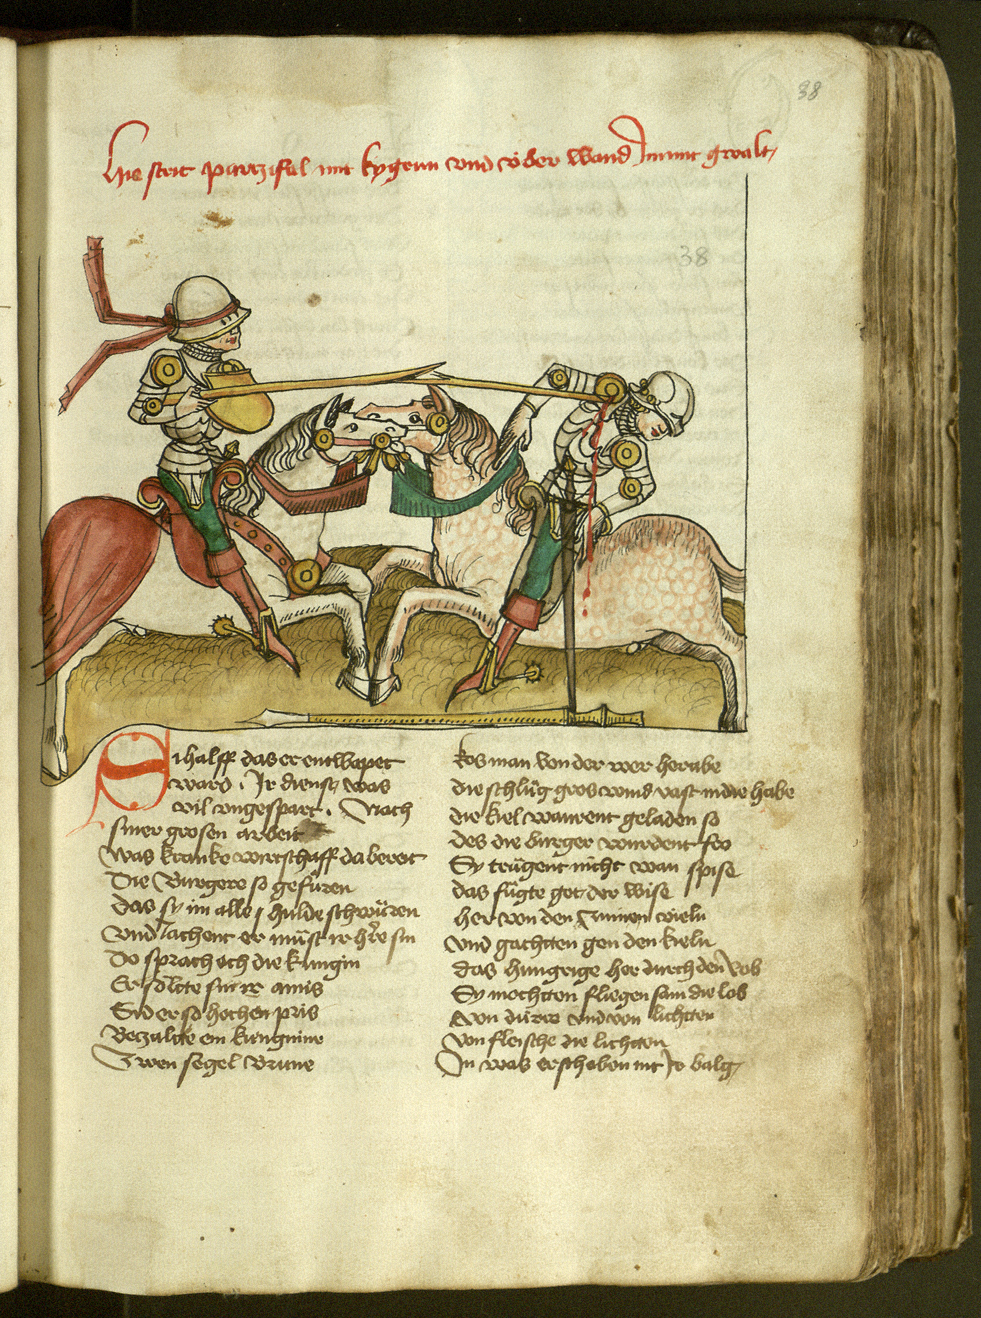 38
Hie strit partzifal mit kyngrun vnd v́der wand Jn mit gwalt
38
Si halff das er entwapet
ward . Jr dienst was
vil vngespart . Nach
siner grosen arbeit
Was kranke wirtschaff da bereit
Die Burgere so gefuren
das sy im alle s hulde schwuren
vnd iachent er müst ir hre sin
Do sprach och die kungin
Er solte sin ir amis
Sid er so hochen pris
Bezalte ein kungrune
Zwen segel Brune
kos man von der wer herabe
die schlůg gros wind vast in die habe
die kiel warent geladen so
des die burger wurdent fro
Sy trůgent nicht wan spise
das fůgte got der wise
her von den Zinnen vieln
vnd gachten gen den kieln
das hungrige her durch den rob
Sy mochten fliegen sam die lob
von dúrre vnd von lichten
von fleische die lichten
In was erschoben nit Jr balg